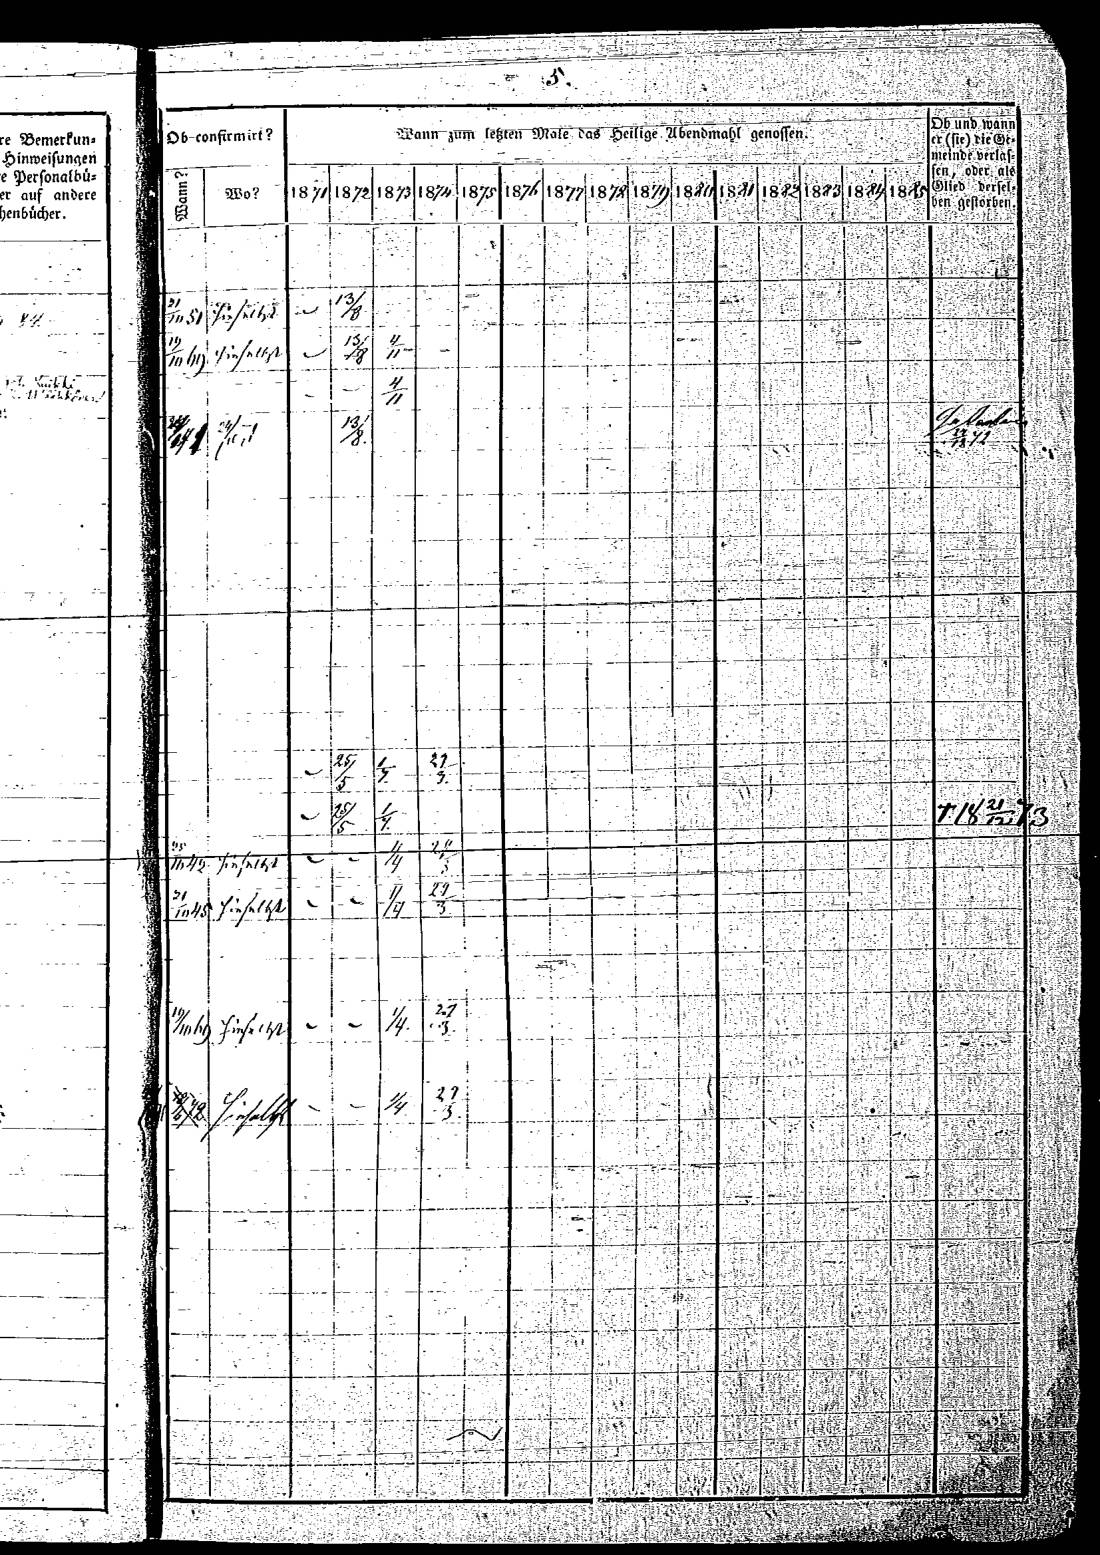 5.
re Bemerkun-
Hinweisungen
e Personalbü-
er auf andere
henbücher.
Ob confirmirt?
Wann zum letzten Male das Heilige Abendmahl genossen.
Ob und wann
er (sie) die Ge-
meinde verlas-
sen, oder als
Glied dersel-
ben gestorben.
Wann? Wo? 1871 1872 1873 1874 1875 1876 1877 1878 1879 1880 1881 1882 1883 1884 1885
21/10 51 hieselbst – 13/8
19/10 69 hieselbst – 13/8 4/11
- - 4/11
13/8
– 25/5 1/7 29/3
– 25/5 1/7 † 18 21/12 73
25/10 42 hieselbst – – 1/4 29/3
21/10 45 hieselbst – – 1/4 29/3
19/10 69 hieselbst – – 1/4 29/3
hieselbst – – 1/4 29/3